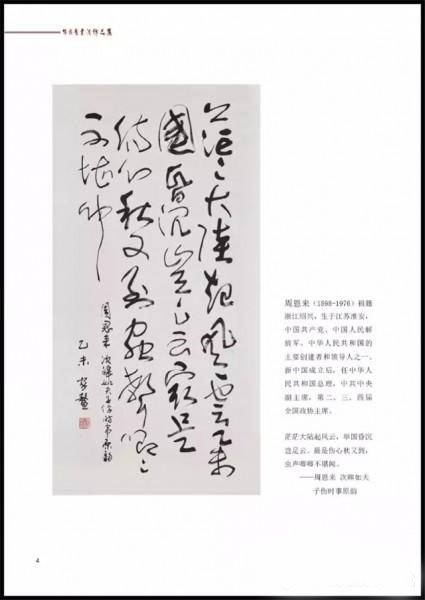 書法作品集
茫〻大陸起風雲舉
國昏沉豈足云最是
傷心秋又到蟲聲唧〻
不堪聞
周恩來 次皞如夫子傷時事原韵
乙未
周恩来（1898-1976）祖籍
浙江绍兴，生于江苏淮安，
中国共产党、中国人民解
放军、中华人民共和国的
主要创建者和领导人之一。
新中国成立后，任中华人
民共和国总理，中共中央
副主席，第二、三、四届
全国政协主席。
茫茫大陆起风云，举国昏沉
岂足云。最是伤心秋又到，
虫声唧唧不堪闻。
——周恩来 次皞如夫
子伤时事原韵
4